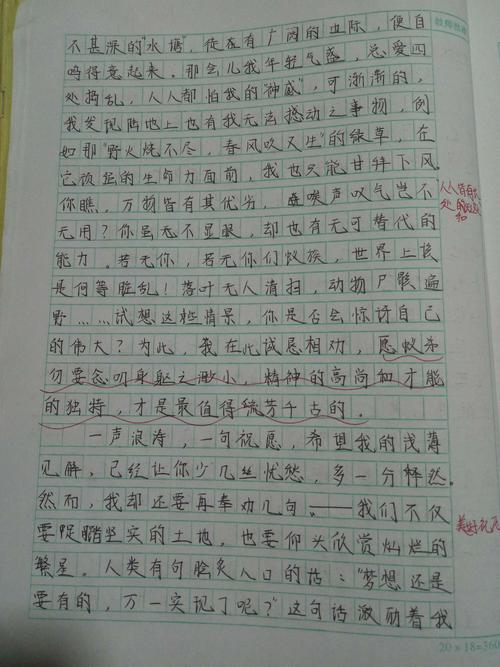 不甚深的"水塘，徒有广阔的边际，便自
鸣得意起来。那会儿我年轻气盛，总爱四
处捣乱，人人都怕我的"神威"，可渐渐的，
我发现陆地上也有我无法撼动之事物，例
如那"野火烧不尽，春风吹又生"的绿草，在
它顽强的生命力面前，我也只能甘拜下风。
你瞧，万物皆有其优劣，唉声叹气岂不
无用？你虽无不显眼，却也有无可替代的
能力。若无你，若无你们蚁族，世界上该
是何等脏乱！落叶无人清扫，动物尸骸遍
野……试想这些情景，你是否会惊讶自己
的伟大？为此，我在此诚恳相劝，愿蚁弟
勿要念叨身躯之渺小，精神的高尚和才能
的独特，才是最值得流芳千古的。
一声浪涛，一句祝愿，希望我的浅薄
见解，已经让你少几丝忧愁，多一分释然。
然而，我却还要再奉劝几句。——我们不仅
要脚踏坚实的土地，也要仰头欣赏灿烂的
繁星。人类有句脍炙人口的话："梦想还是
要有的，万一实现了呢？"这句话激励着我
美好祝愿
20×18=360